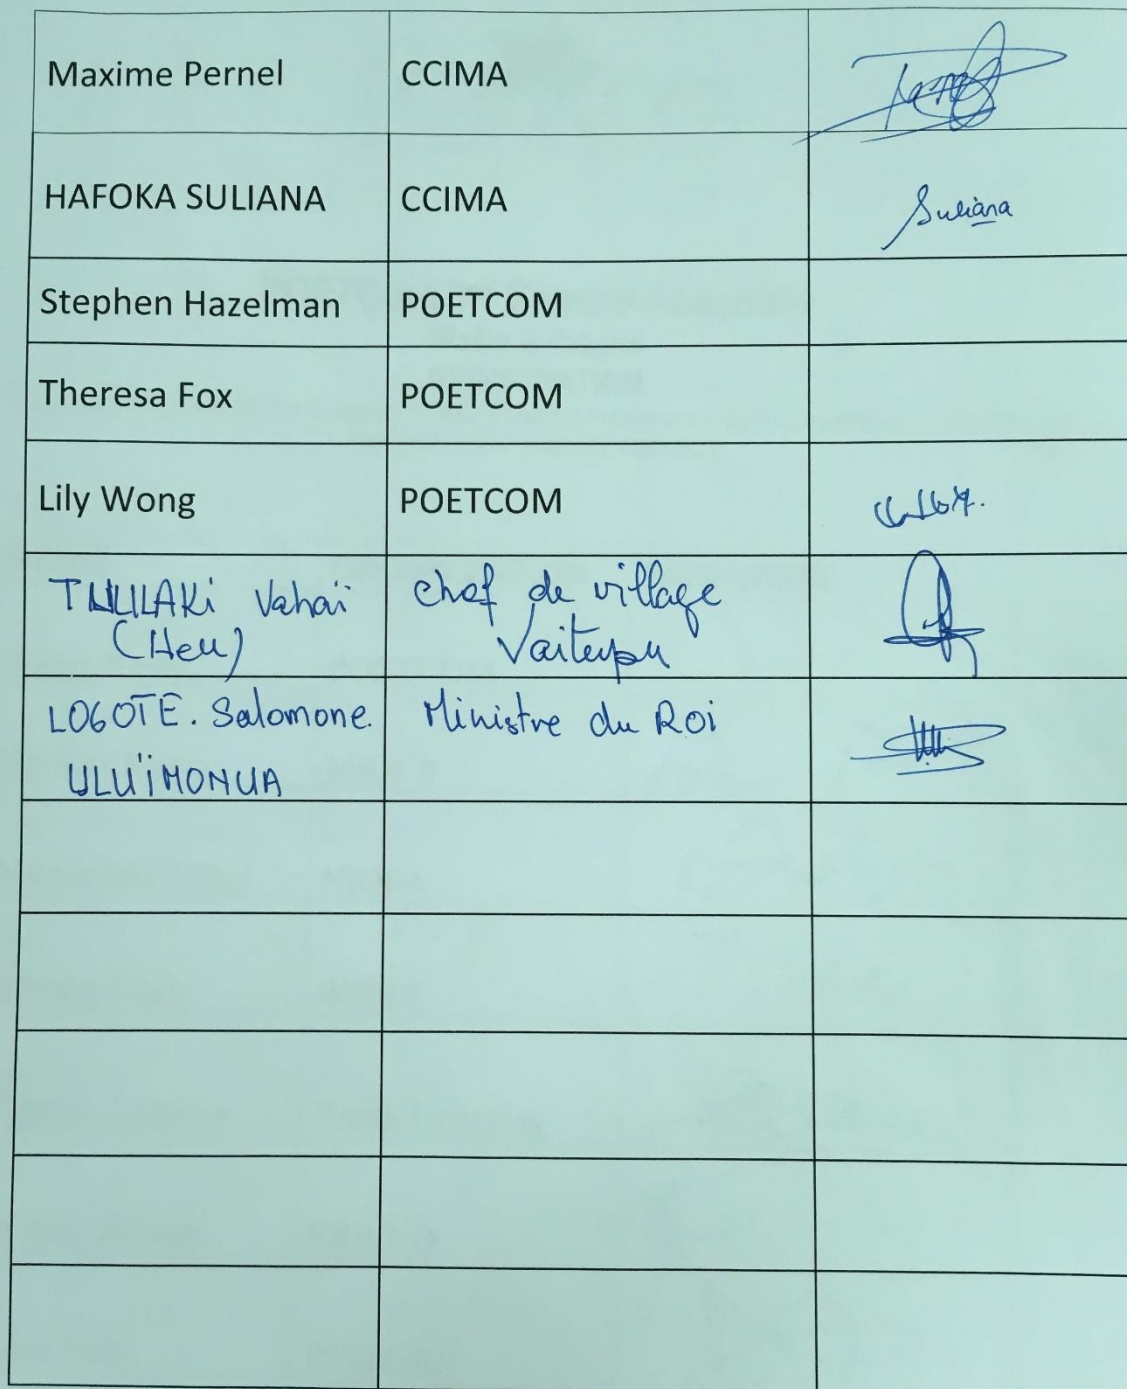 Maxime Pernel CCIMA
HAFOKA SULIANA CCIMA Suliana
Stephen Hazelman POETCOM
Theresa Fox POETCOM
Lily Wong POETCOM
Vahaï chef de village
(Heu) Vaitupu
LOGOTE. Salomone. Ministre du Roi
ULU'iMONUA